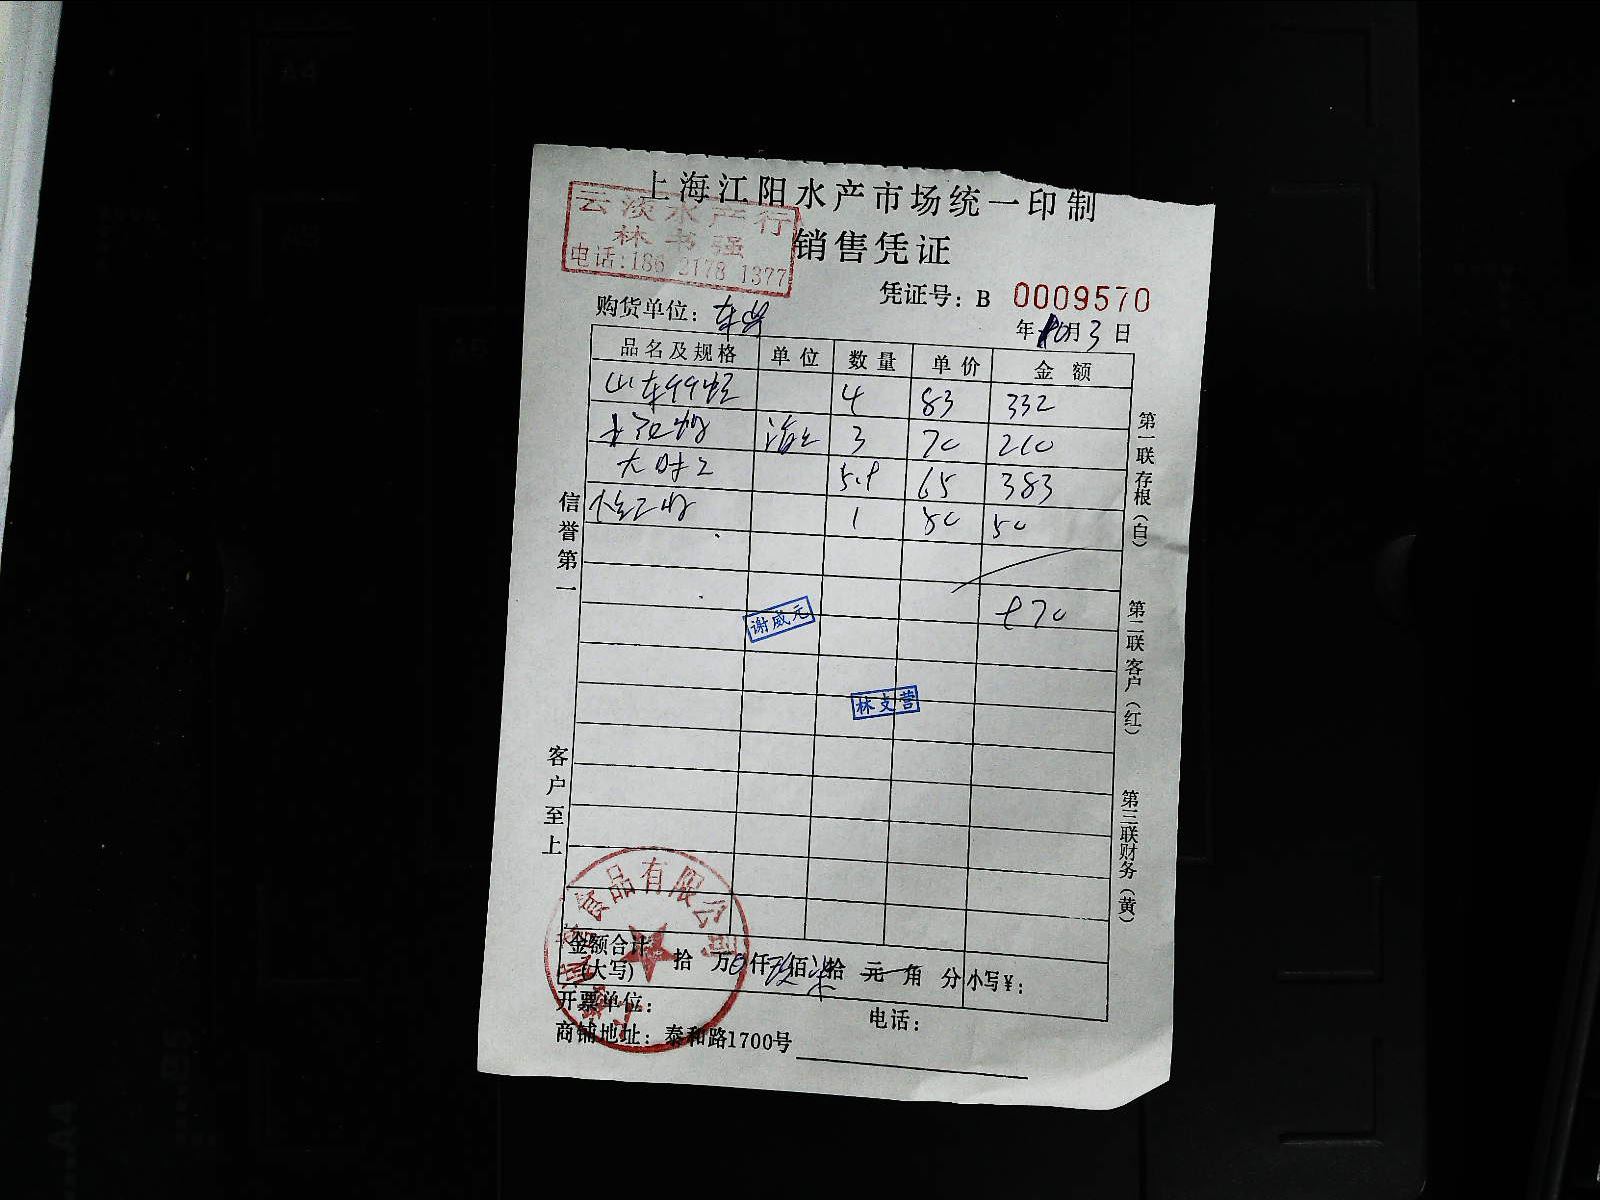 上海江阳水产市场统一印制
云淡水产行
林书强
电话:186 2178 1377
销售凭证
凭证号: B 0009570
购货单位:
年10月3日
品名及规格 单位 数量 单价 金额
山东 4 83 332
3 70 210
大 5.9 65 383
1 50 50
970
谢威元
林支营
信誉第一
客户至上
第一联存根(白)
第二联客户(红)
第三联财务(黄)
食品有限公司
金额合计(大写) 拾 万0仟玖佰柒拾 元 角 分 小写¥:
开票单位:
电话:
商铺地址: 泰和路1700号